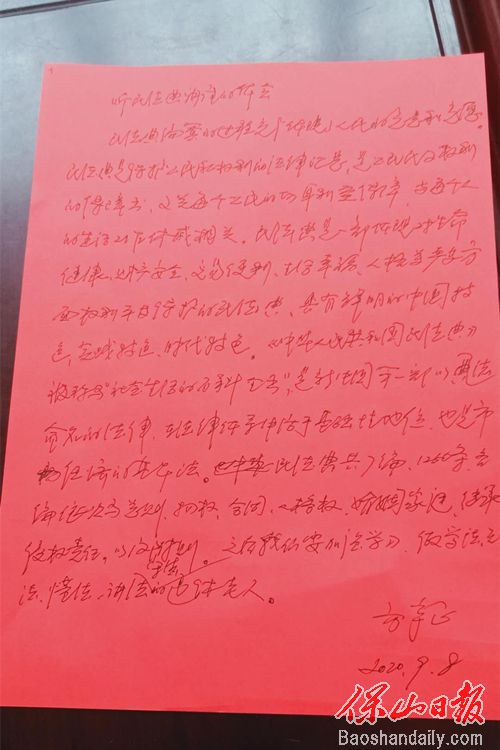 听民法典讲座的体会
民法典编纂的过程充分体现了人民的意愿。
民法典是保护人民权利的法律，是公民民事权利
的保障书，又是每个公民的切身利益保障，与每个人
的生活工作休戚相关。民法典是一部体现对生命
健康、财产安全、交易便利、生活幸福、人格尊严等方
面权利平等保护的民法典，具有鲜明的中国特
色、实践特色、时代特色。《中华人民共和国民法典》
被称为"社会生活的百科全书"，是新中国第一部以典法
命名的法律，在法律体系中居于基础性地位，也是市
场经济的基本法。民法典共7编、1260条，各
编依次为总则、物权、合同、人格权、婚姻家庭、继承、
侵权责任，以及附则。之后我们要加法学习，做学法、
法、懂法、守法、讲法的退休老人。
2020.9.8
保山日报
Baoshandaily.com